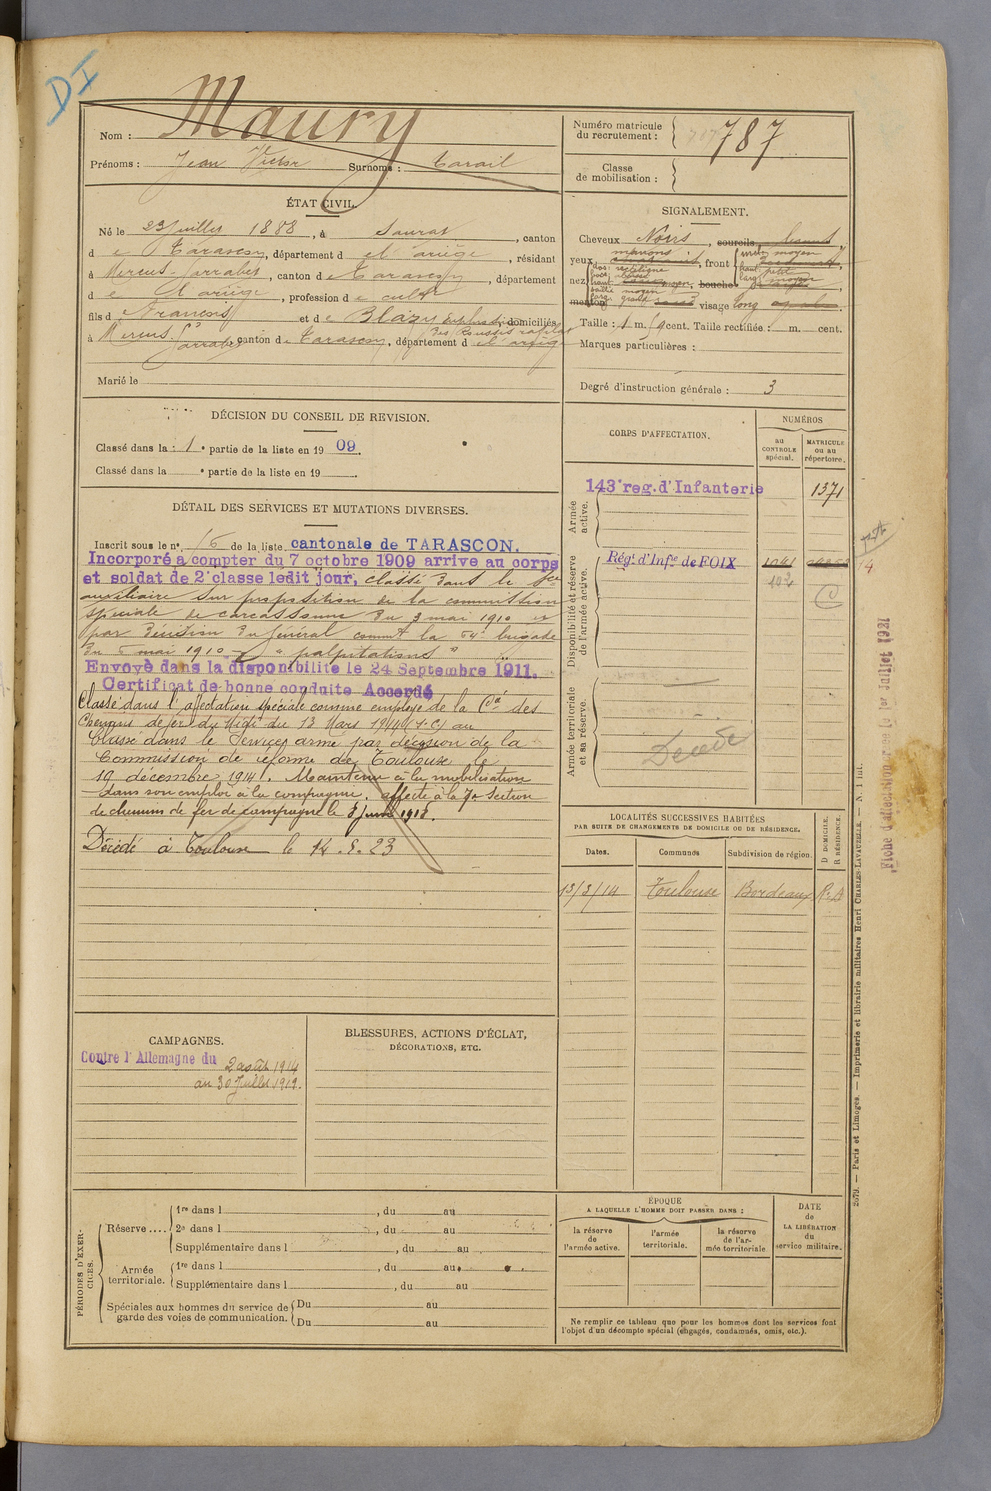 DI
Nom : Maury
Prénoms : Jean Victor Surnoms :
Numéro matricule du recrutement : 787
Classe de mobilisation :
ÉTAT CIVIL.
Né le 23 juillet 1888, à Saurat, canton
de Tarascon, département d el'ariège, résidant
à Mercus-Garrabet, canton de Tarascon, département
de l'ariège, profession de cultr
fils de François et de Blazy domiciliés
à Mercus-Garrabet, canton de Tarascon, département d el'ariège
Marié le
SIGNALEMENT.
Cheveux Noirs, sourcils
yeux marrons, front moyen
nez rectiligne, bouche
menton visage long
Taille : 1 m. cent. Taille rectifiée : m. cent.
Marques particulières :
Degré d'instruction générale : 3
DÉCISION DU CONSEIL DE REVISION.
Classé dans la 1e partie de la liste en 1909.
Classé dans la e partie de la liste en 19
DÉTAIL DES SERVICES ET MUTATIONS DIVERSES.
Inscrit sous le n° 16 de la liste cantonale de TARASCON.
Incorporé à compter du 7 octobre 1909 arrive au corps
et soldat de 2e classe ledit jour, classé dans le Sce
auxiliaire sur proposition de la commission
spéciale de Carcassonne du 3 mai 1910 et
par décision du Général commt la 64e brigade
du mai 1910 "palpitations"
Envoyé dans la disponibilite le 24 Septembre 1911.
Certificat de bonne conduite Accordé
Classé dans l'affectation spéciale comme employé de la Cie des
Chemins de fer du Midi du 13 Mars 1914 au
Classé dans le Service armé par décision de la
Commission de réforme de Toulouse le
19 décembre 1914. Maintenu à la mobilisation
dans son emploi à la compagnie. affecté à la 7e Section
de chemins de fer de campagne le 8 Juin 1918.
Décédé à Toulouse le 14.8.23
CORPS D'AFFECTATION.
NUMÉROS
au CONTROLE spécial.
MATRICULE ou au répertoire.
Armée active.
143e reg. d'Infanterie 1371
Disponibilité et réserve de l'armée active.
Régt d'Infie de FOIX 1041
Armée territoriale et sa réserve.
Décédé
LOCALITÉS SUCCESSIVES HABITÉES
PAR SUITE DE CHANGEMENTS DE DOMICILE OU DE RÉSIDENCE.
Dates. Communes Subdivision de région. D DOMICILE. R RÉSIDENCE.
13/3/14 Toulouse Bordeaux R.D
CAMPAGNES.
Contre l'Allemagne du 2 août 1914
au 30 Juillet 1919.
BLESSURES, ACTIONS D'ÉCLAT,
DÉCORATIONS, ETC.
PÉRIODES D'EXERCICES.
Réserve .... 1re dans l , du au
2e dans l , du au
Supplémentaire dans l , du au
Armée territoriale. 1re dans l , du au
Supplémentaire dans l , du au
Spéciales aux hommes du service de garde des voies de communication. Du au
Du au
ÉPOQUE
A LAQUELLE L'HOMME DOIT PASSER DANS :
la réserve de l'armée active.
l'armée territoriale.
la réserve de l'armée territoriale
DATE de LA LIBÉRATION du service militaire.
Ne remplir ce tableau que pour les hommes dont les services font
l'objet d'un décompte spécial (engagés, condamnés, omis, etc.).
2579. — Paris et Limoges. — Imprimerie et librairie militaires Henri CHARLES-LAVAUZELLE. — N. 1 int.